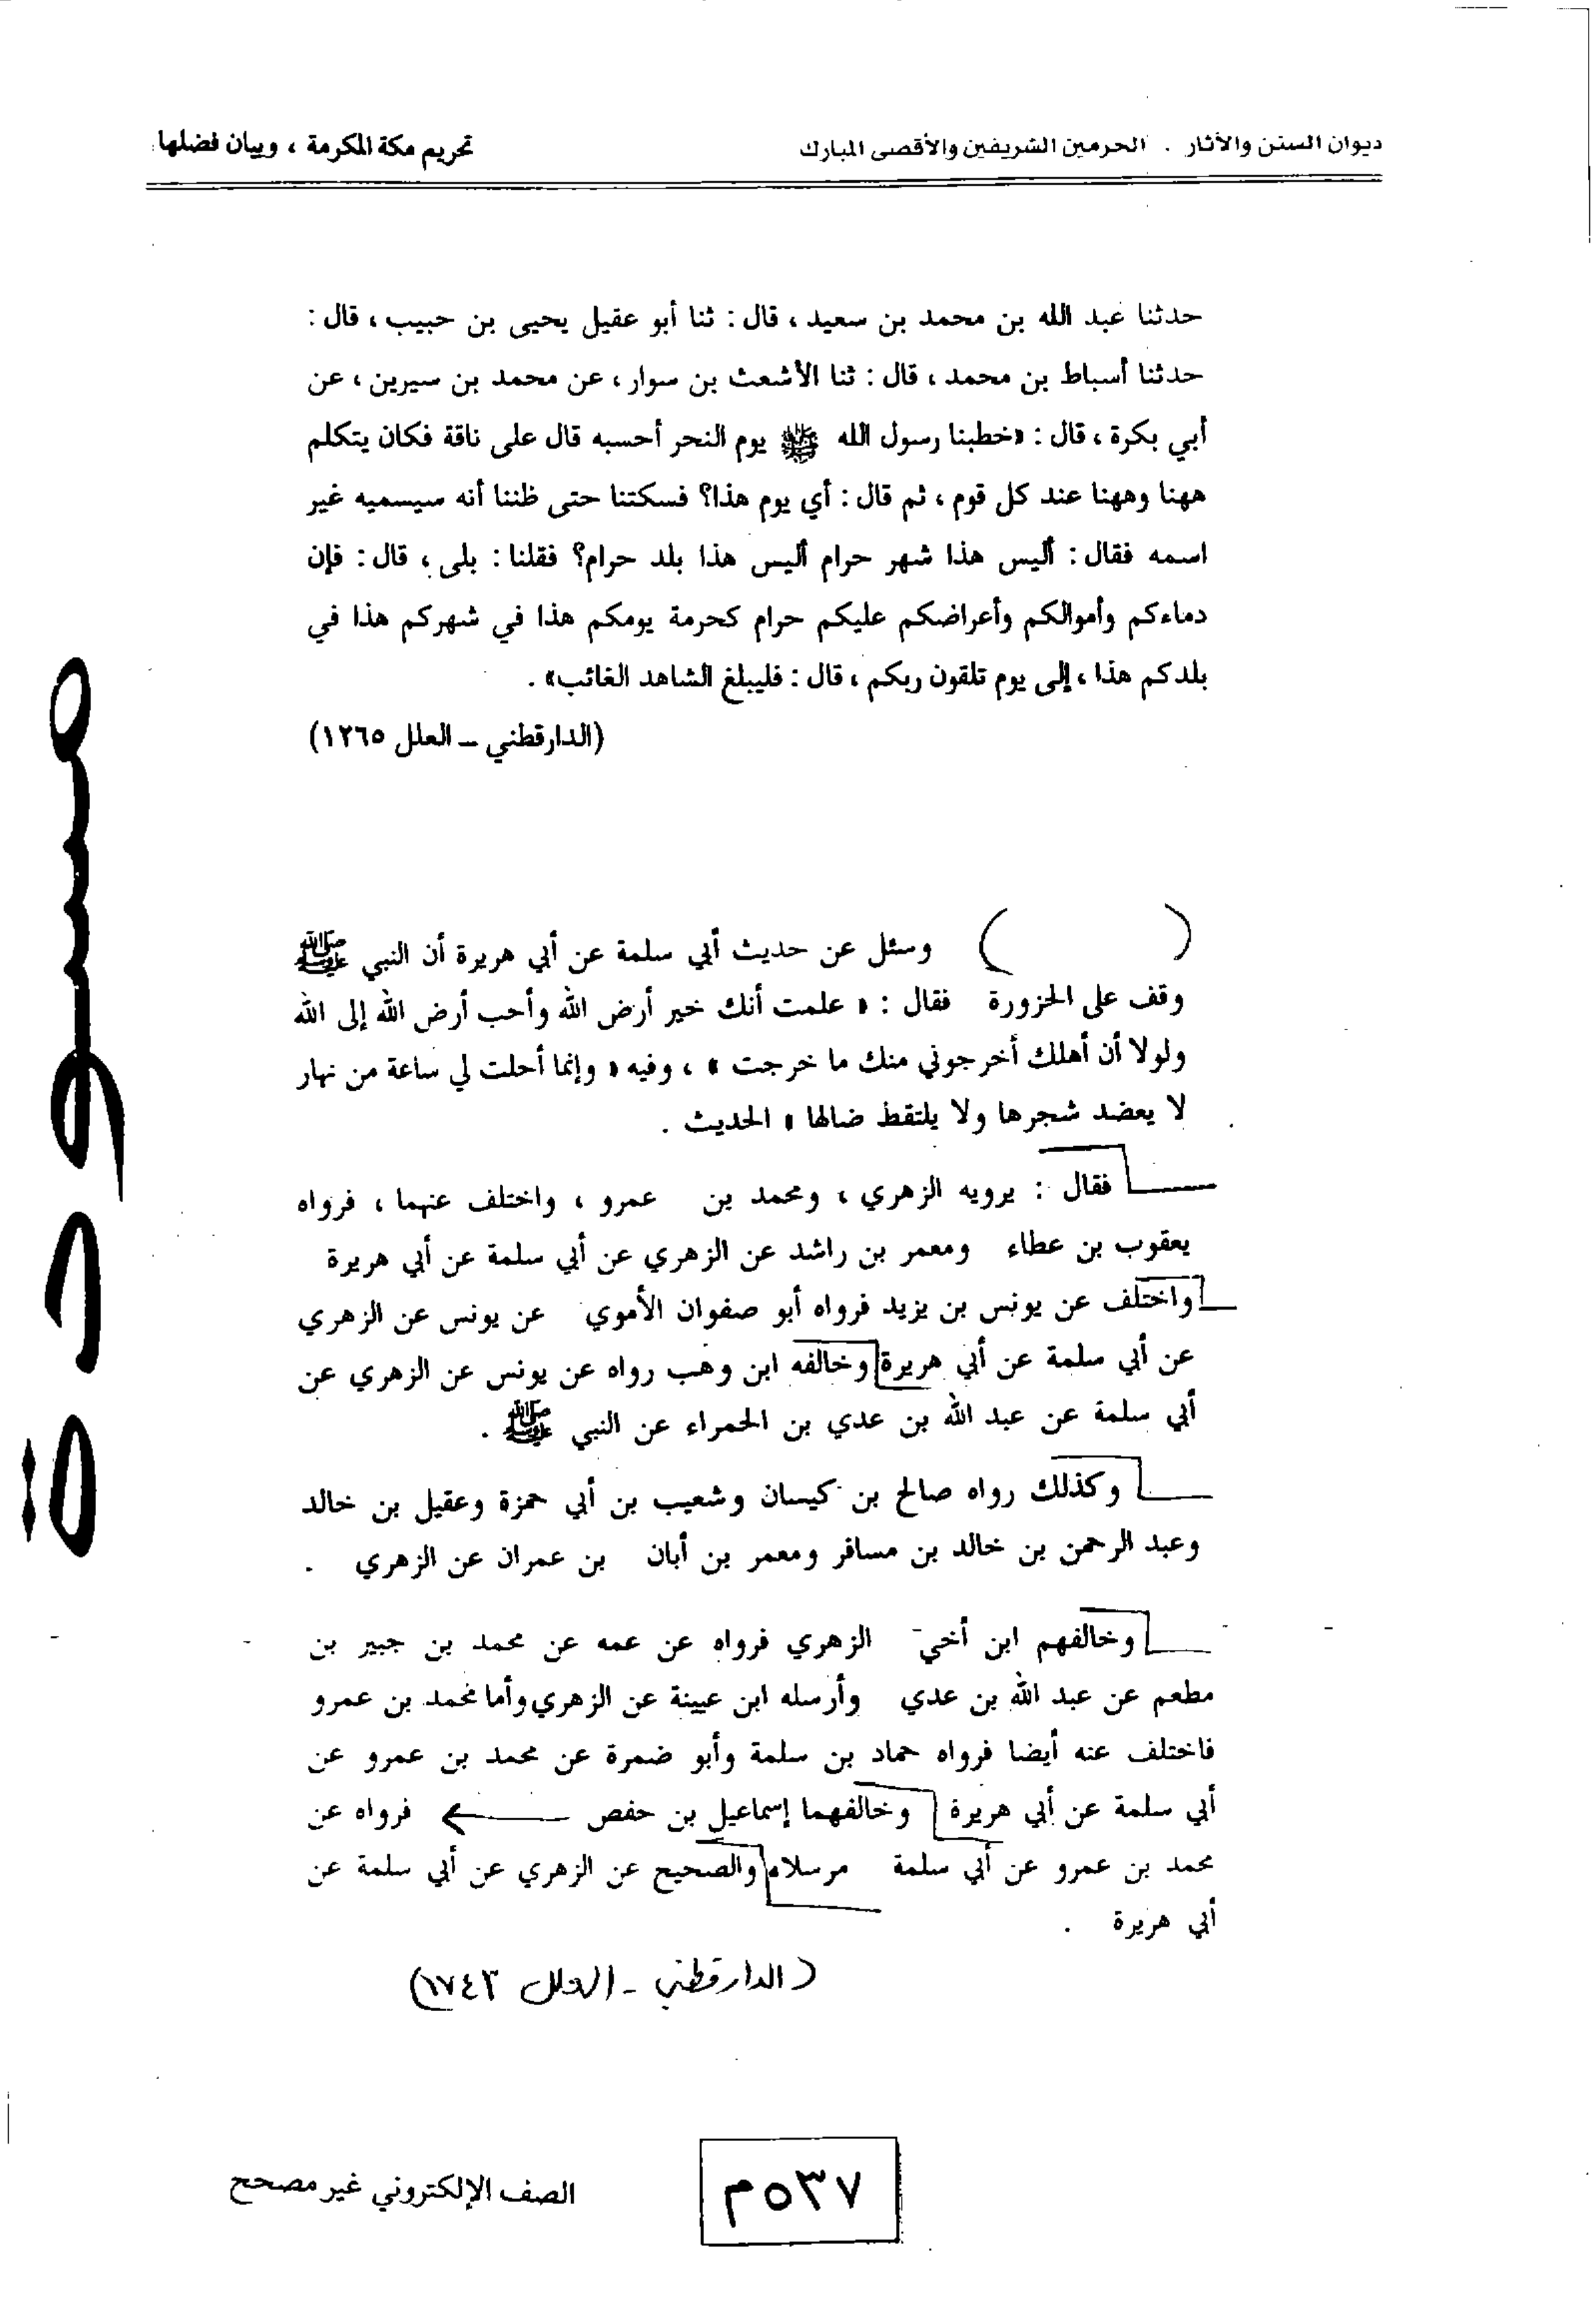 ديوان السنن والآثار . الحرمين الشريفين والأقصى المبارك
تحريم مكة المكرمة ، وبيان فضلها
حدثنا عبد الله بن محمد بن سعيد ، قال : ثنا أبو عقيل يحيى بن حبيب ، قال :
حدثنا أسباط بن محمد ، قال : ثنا الأشعث بن سوار ، عن محمد بن سيرين ، عن
أبي بكرة ، قال : «خطبنا رسول الله ﷺ يوم النحر أحسبه قال على ناقة فكان يتكلم
ههنا وههنا عند كل قوم ، ثم قال : أي يوم هذا؟ فسكتنا حتى ظننا أنه سيسميه غير
اسمه فقال : أليس هذا شهر حرام أليس هذا بلد حرام؟ فقلنا : بلى ، قال : فإن
دماءكم وأموالكم وأعراضكم عليكم حرام كحرمة يومكم هذا في شهركم هذا في
بلدكم هذا ، إلى يوم تلقون ربكم ، قال : فليبلغ الشاهد الغائب» .
(الدارقطني – العلل ١٢٦٥)
( ) وسئل عن حديث أبي سلمة عن أبي هريرة أن النبي ﷺ
وقف على الحزورة فقال : « علمت أنك خير أرض الله وأحب أرض الله إلى الله
ولولا أن أهلك أخرجوني منك ما خرجت » ، وفيه « وإنما أحلت لي ساعة من نهار
لا يعضد شجرها ولا يلتقط ضالها » الحديث .
فقال : يرويه الزهري ، ومحمد بن عمرو ، واختلف عنهما ، فرواه
يعقوب بن عطاء ومعمر بن راشد عن الزهري عن أبي سلمة عن أبي هريرة
واختلف عن يونس بن يزيد فرواه أبو صفوان الأموي عن يونس عن الزهري
عن أبي سلمة عن أبي هريرة وخالفه ابن وهب رواه عن يونس عن الزهري عن
أبي سلمة عن عبد الله بن عدي بن الحمراء عن النبي ﷺ .
وكذلك رواه صالح بن كيسان وشعيب بن أبي حمزة وعقيل بن خالد
وعبد الرحمن بن خالد بن مسافر ومعمر بن أبان بن عمران عن الزهري .
وخالفهم ابن أخي الزهري فرواه عن عمه عن محمد بن جبير بن
مطعم عن عبد الله بن عدي وأرسله ابن عيينة عن الزهري وأما محمد بن عمرو
فاختلف عنه أيضا فرواه حماد بن سلمة وأبو ضمرة عن محمد بن عمرو عن
أبي سلمة عن أبي هريرة وخالفهما إسماعيل بن حفص فرواه عن
محمد بن عمرو عن أبي سلمة مرسلاً والصحيح عن الزهري عن أبي سلمة عن
أبي هريرة .
(الدارقطني - العلل ١٧٤٣)
٥٣٧م
الصف الإلكتروني غير مصحح
مسودة